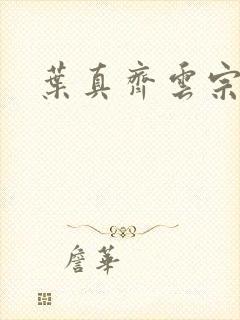 葉真齊雲宗
詹華